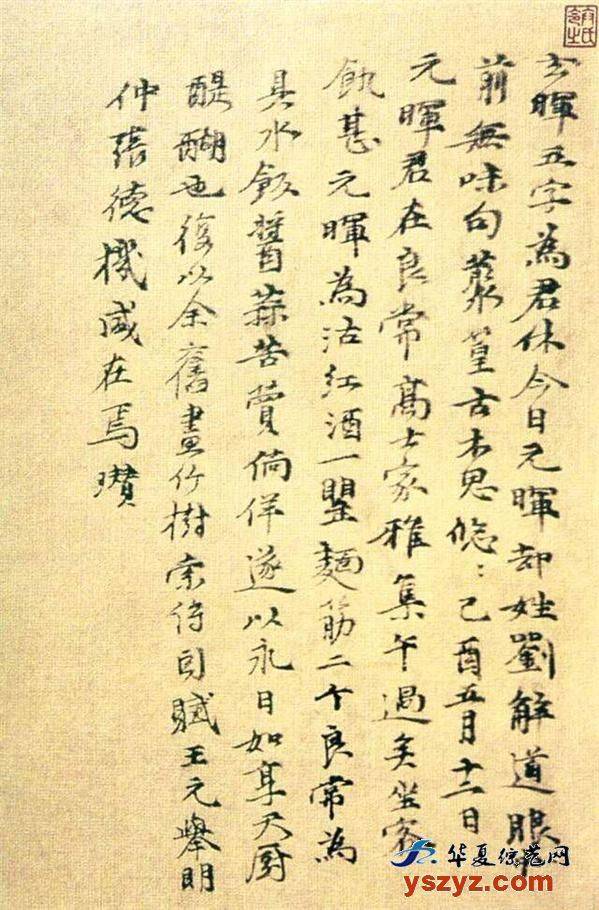 玄暉五字為君休今日元暉却姓劉解道眼
前無味句叢篁古木思悠:己酉五月十二日
元暉君在良常高士家雅集午過矣坐客
飢甚元暉為沽紅酒一罌麵筋二个良常為
具水飯醬蒜苦蕒徜佯遂以永日如享天厨
醍醐也復以余舊畫竹樹索賦王元舉明
仲張德機咸在焉瓚
华夏网
yszyz.com